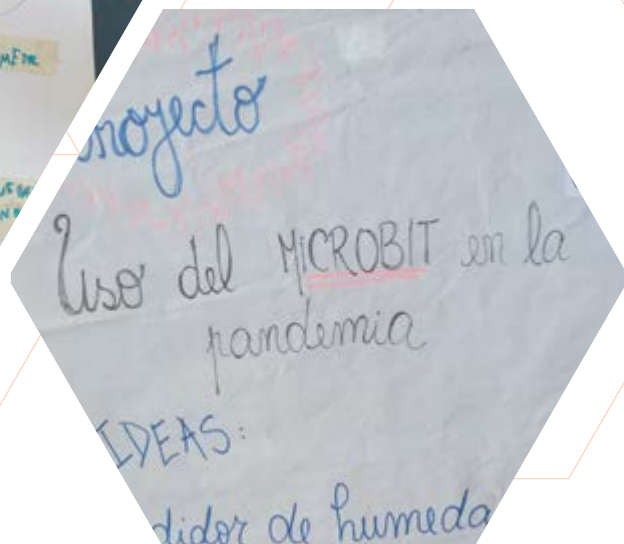 royecto
Uso del MiCROBIT en la
pandemia
IDEAS:
didor de humeda